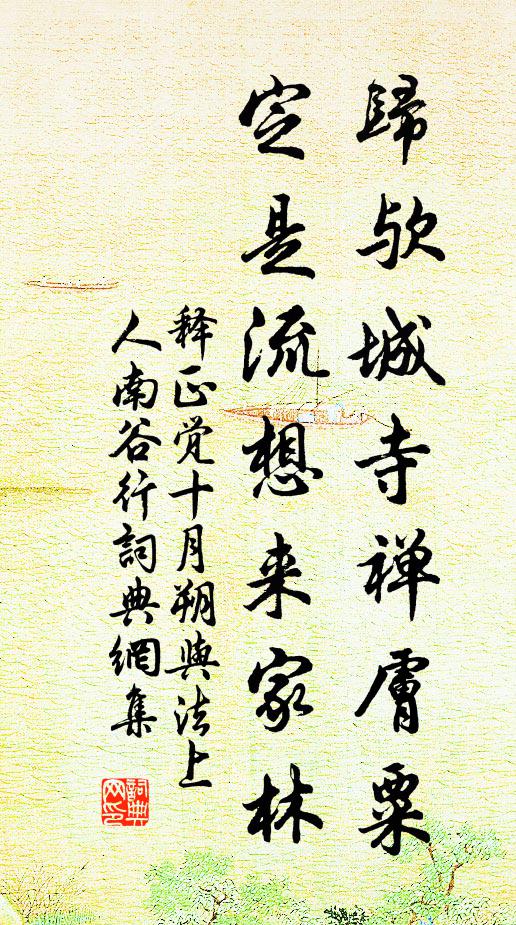 歸欤城寺禅膚粟
定是流想来家林
释正觉十月朔與法上
人南谷行詞典網集
詞典网印